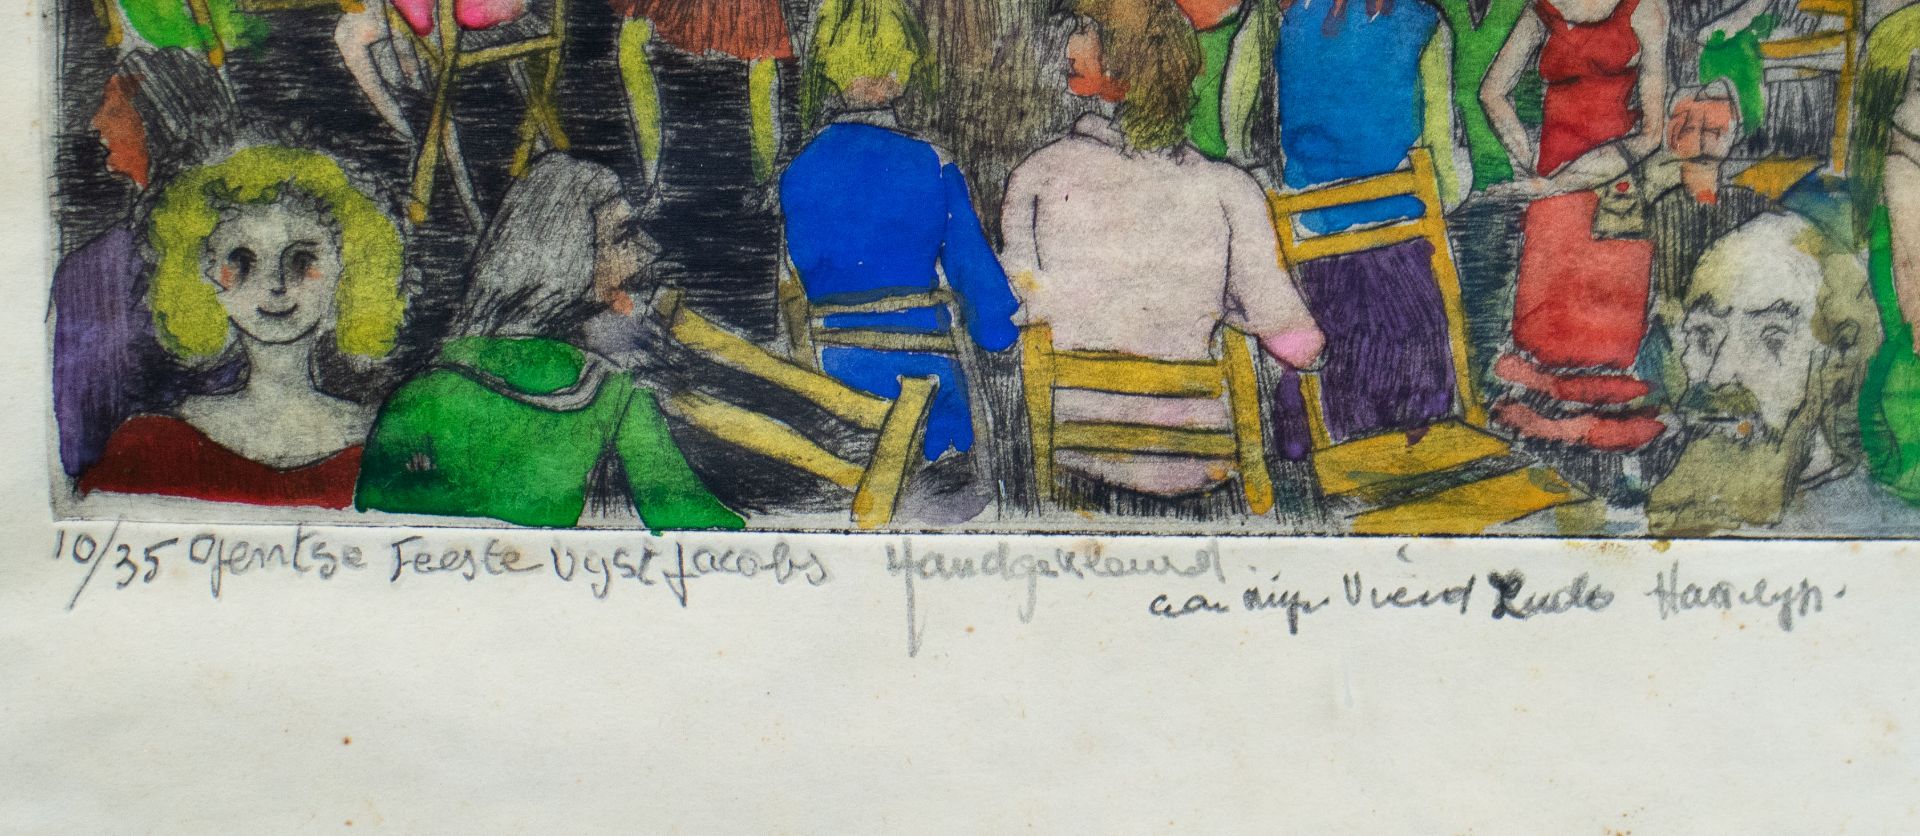 10/35 Gentse Feeste Vyst Jacobs Handgekleurd.
aan mijn Vriend Ludo Haazeyn.